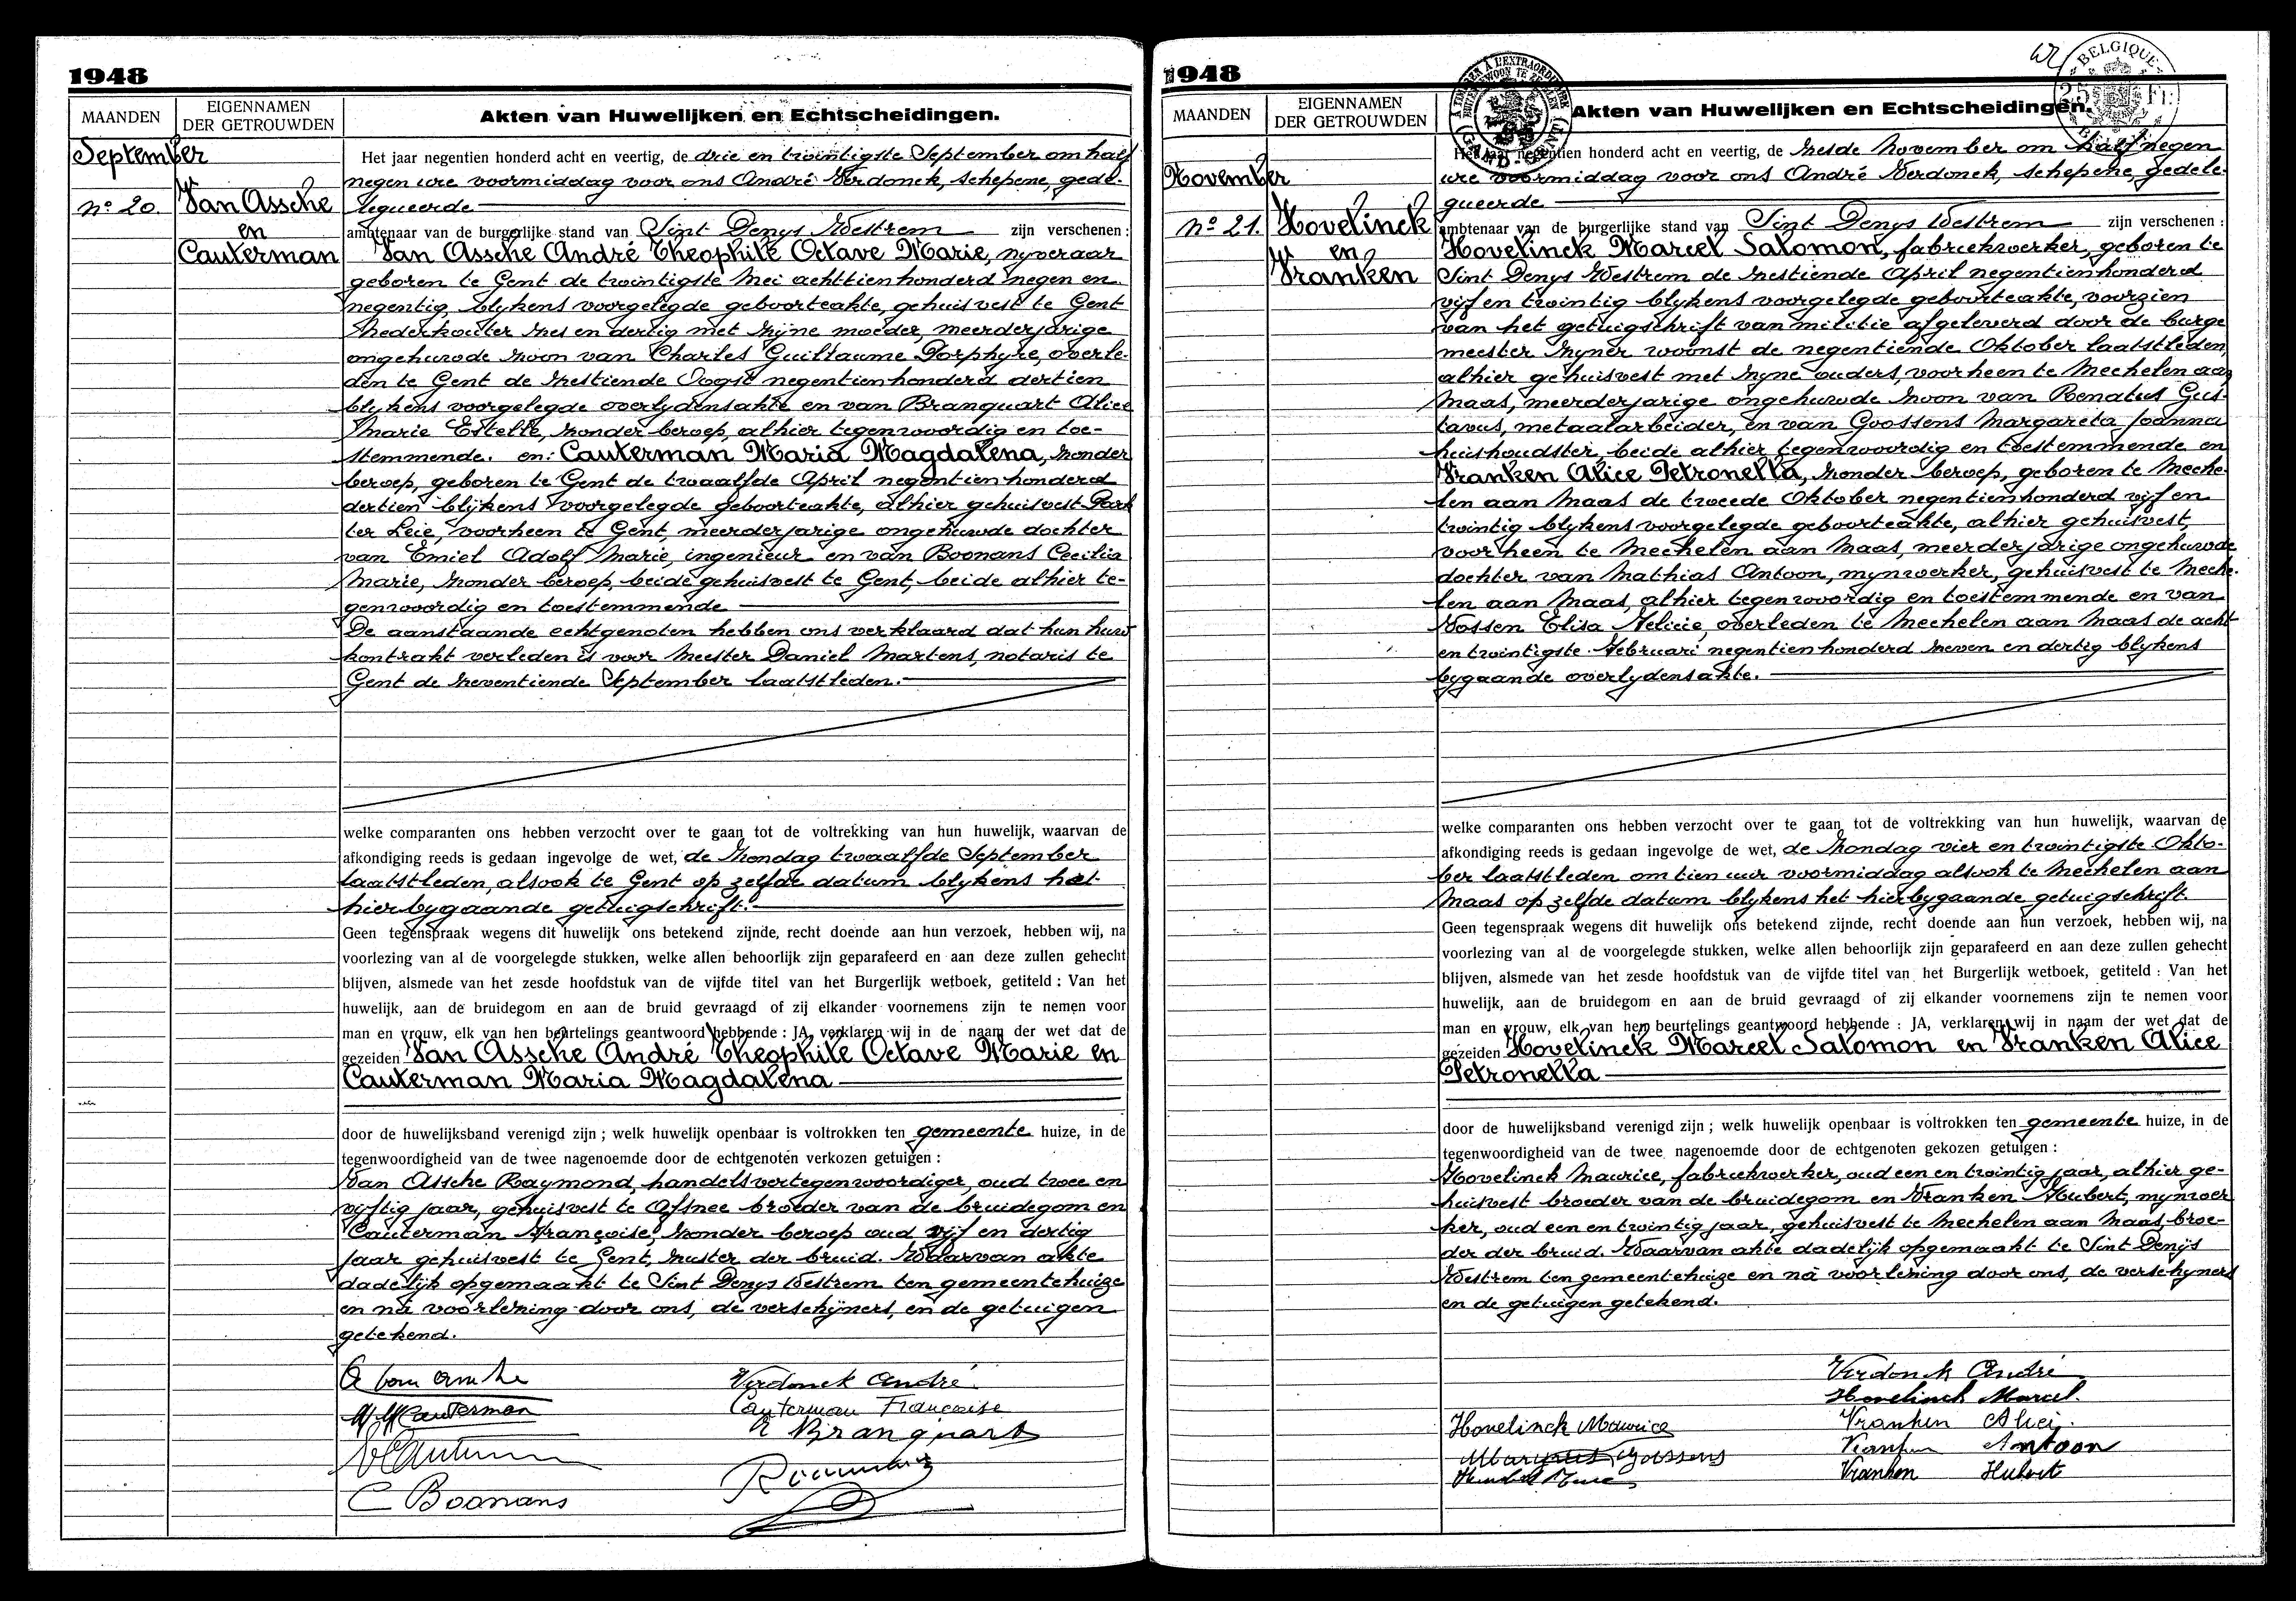 1948
MAANDEN
EIGENNAMEN
DER GETROUWDEN
Akten van Huwelijken en Echtscheidingen.
September
nº 20.
Van Assche
en
Cauterman
Het jaar negentien honderd acht en veertig, de drie en twintigste September om half
negen ure voormiddag voor ons André Verdonck, schepene, gede-
legueerde
ambtenaar van de burgerlijke stand van Sint Denys Westrem zijn verschenen :
Van Assche André Theophile Octave Marie, nyveraar
geboren te Gent de twintigste Mei achttienhonderd negen en
negentig, blykens voorgelegde geboorteakte, gehuisvest te Gent
Nederkouter zes en dertig met zijne moeder, meerderjarige
ongehuwde zoon van Charles Guillaume Porphyre, overle-
den te Gent de zestiende Oogst negentienhonderd dertien
blykens voorgelegde overlydensakte en van Branquart Alice
Marie Estelle, zonder beroep, alhier tegenwoordig en toe-
stemmende. en: Cauterman Maria Magdalena, zonder
beroep, geboren te Gent de twaalfde April negentienhonderd
dertien blijkens voorgelegde geboorteakte, alhier gehuisvest Park
ter Leie, voorheen te Gent, meerderjarige ongehuwde dochter
van Emiel Adolf Marie, ingenieur en van Boonans Cecilia
Marie, zonder beroep, beide gehuisvest te Gent, beide alhier te-
genwoordig en toestemmende
De aanstaande echtgenoten hebben ons verklaard dat hun huw
kontrakt verleden is voor Meester Daniel Martens, notaris te
Gent de zeventiende September laatstleden.
welke comparanten ons hebben verzocht over te gaan tot de voltrekking van hun huwelijk, waarvan de
afkondiging reeds is gedaan ingevolge de wet, de zondag twaalfde September
laatstleden, alsook te Gent op zelfde datum blykens het
hierbygaande getuigschrift.
Geen tegenspraak wegens dit huwelijk ons betekend zijnde, recht doende aan hun verzoek, hebben wij, na
voorlezing van al de voorgelegde stukken, welke allen behoorlijk zijn geparafeerd en aan deze zullen gehecht
blijven, alsmede van het zesde hoofdstuk van de vijfde titel van het Burgerlijk wetboek, getiteld : Van het
huwelijk, aan de bruidegom en aan de bruid gevraagd of zij elkander voornemens zijn te nemen voor
man en vrouw, elk van hen beurtelings geantwoord hebbende : JA, verklaren wij in de naam der wet dat de
gezeiden Van Assche André Theophile Octave Marie en
Cauterman Maria Magdalena
door de huwelijksband verenigd zijn ; welk huwelijk openbaar is voltrokken ten gemeente huize, in de
tegenwoordigheid van de twee nagenoemde door de echtgenoten verkozen getuigen :
Van Assche Raymond, handelsvertegenwoordiger, oud twee en
vijftig jaar, gehuisvest te Afsnee broeder van de bruidegom en
Cauterman Françoise, zonder beroep oud vijf en dertig
jaar gehuisvest te Gent, zuster der bruid. Waarvan akte
dadelijk opgemaakt te Sint Denys Westrem ten gemeentehuize
en na voorlezing door ons, de verschijners, en de getuigen
getekend.
Verdonck André.
MM Cauterman
Cauterman Françoise
Branquart
C Boonans
1948
A L'EXTRAORDINAIRE
GAND - GENT
BELGIQUE
25 Fr
MAANDEN
EIGENNAMEN
DER GETROUWDEN
Akten van Huwelijken en Echtscheidingen.
November
nº 21.
Hovelinck
en
Vranken
Het jaar negentien honderd acht en veertig, de zesde November om half negen
ure voormiddag voor ons André Verdonck, schepene, gedele-
gueerde
ambtenaar van de burgerlijke stand van Sint Denys Westrem zijn verschenen :
Hovelinck Marcel Salomon, fabriekwerker, geboren te
Sint Denys Westrem de zestiende April negentienhonderd
vijf en twintig blykens voorgelegde geboorteakte, voorzien
van het getuigschrift van militie afgeleverd door de burge
meester zyner woonst de negentiende Oktober laatstleden,
alhier gehuisvest met zyne ouders, voorheen te Mechelen aan
Maas, meerderjarige ongehuwde zoon van Renatus Gus-
tavus, metaalarbeider, en van Goossens Margareta Joanna
huishoudster, beide alhier tegenwoordig en toestemmende en
Vranken Alice Petronella, zonder beroep, geboren te Meche-
len aan Maas de tweede Oktober negentienhonderd vijf en
twintig blykens voorgelegde geboorteakte, alhier gehuisvest,
voorheen te Mechelen aan Maas, meerderjarige ongehuwde
dochter van Mathias Antoon, mynwerker, gehuisvest te Meche-
len aan Maas, alhier tegenwoordig en toestemmende en van
Vossen Elisa Felicie, overleden te Mechelen aan Maas de acht
en twintigste Februari negentienhonderd zeven en dertig blykens
bygaande overlydensakte.
welke comparanten ons hebben verzocht over te gaan tot de voltrekking van hun huwelijk, waarvan de
afkondiging reeds is gedaan ingevolge de wet, de zondag vier en twintigste Okto-
ber laatstleden om tien uur voormiddag alsook te Mechelen aan
Maas op zelfde datum blykens het hierbygaande getuigschrift.
Geen tegenspraak wegens dit huwelijk ons betekend zijnde, recht doende aan hun verzoek, hebben wij, na
voorlezing van al de voorgelegde stukken, welke allen behoorlijk zijn geparafeerd en aan deze zullen gehecht
blijven, alsmede van het zesde hoofdstuk van de vijfde titel van het Burgerlijk wetboek, getiteld : Van het
huwelijk, aan de bruidegom en aan de bruid gevraagd of zij elkander voornemens zijn te nemen voor
man en vrouw, elk van hem beurtelings geantwoord hebbende : JA, verklaren wij in naam der wet dat de
gezeiden Hovelinck Marcel Salomon en Vranken Alice
Petronella
door de huwelijksband verenigd zijn ; welk huwelijk openbaar is voltrokken ten gemeente huize, in de
tegenwoordigheid van de twee nagenoemde door de echtgenoten gekozen getuigen :
Hovelinck Maurice, fabriekwerker, oud een en twintig jaar, alhier ge-
huisvest broeder van de bruidegom en Vranken Hubert, mynwer
ker, oud een en twintig jaar, gehuisvest te Mechelen aan Maas, broe-
der der bruid. Waarvan akte dadelijk opgemaakt te Sint Denijs
Westrem ten gemeentehuize en nà voorlezing door ons, de verschyners
en de getuigen getekend.
Verdonck André
Hovelinck Marcel.
Hovelinck Maurice
Vranken Alice.
Goossens
Antoon
Vranken Hubert